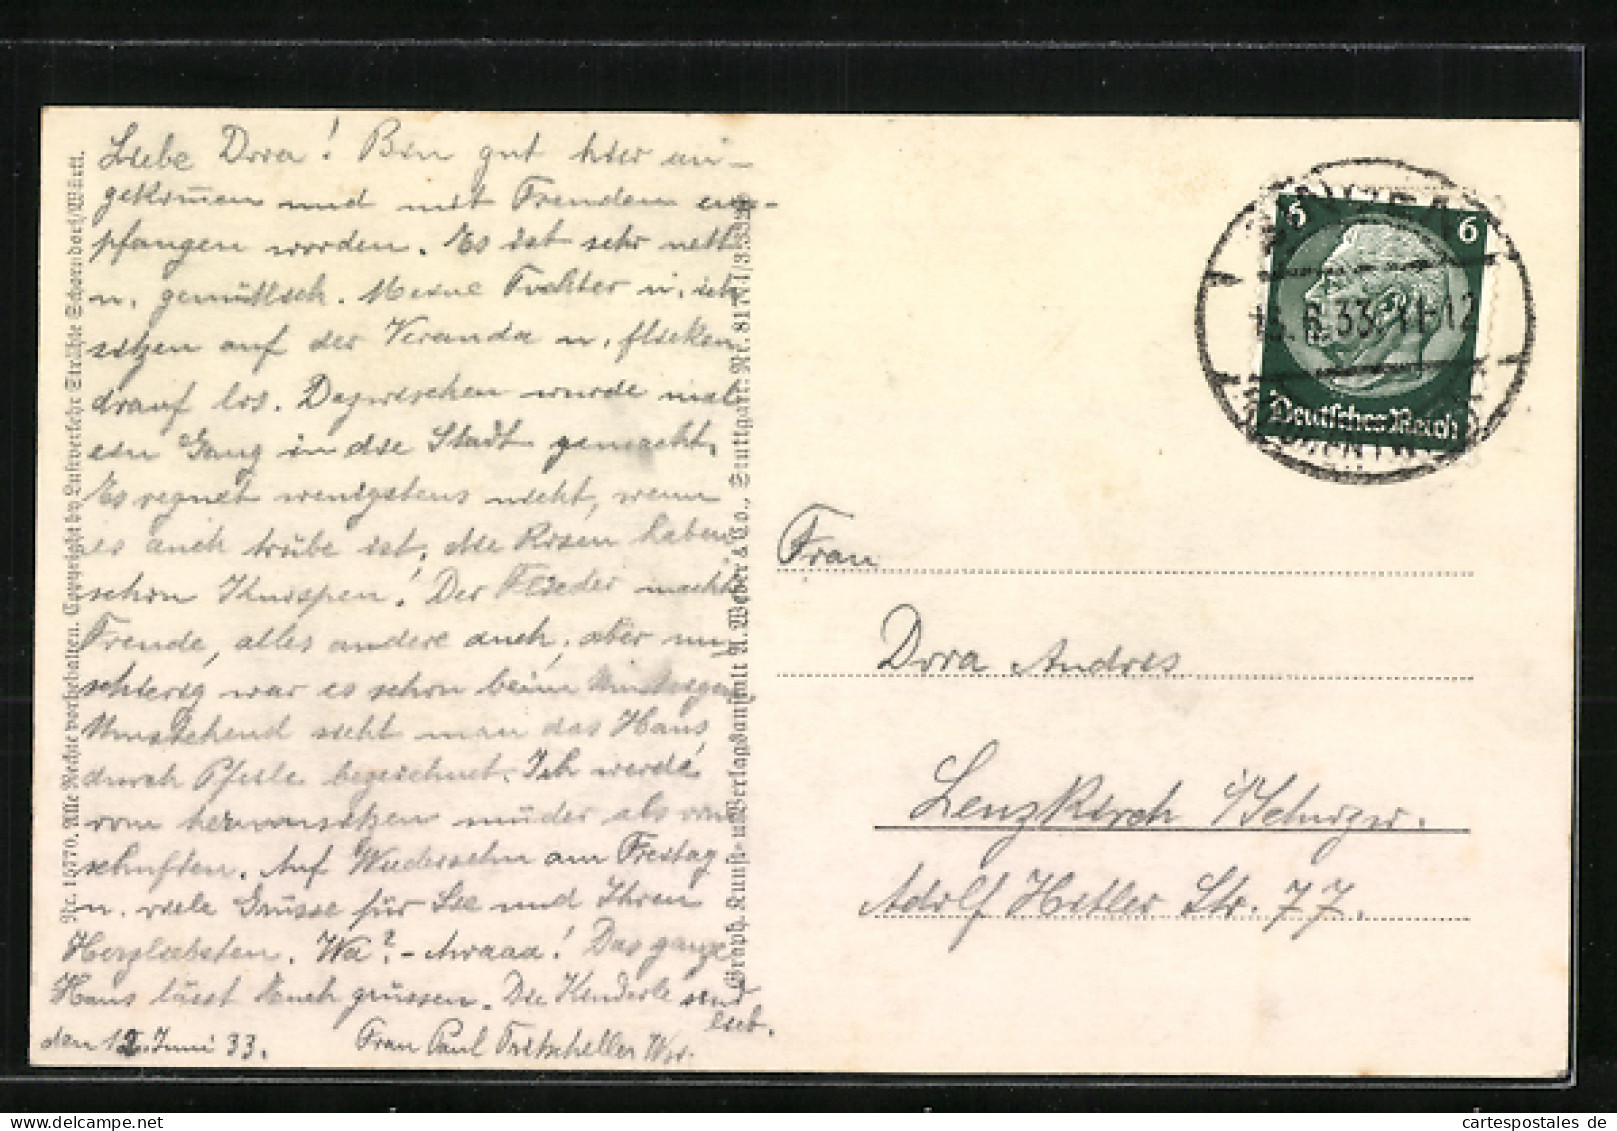 Liebe Dora! Bin gut hier an-
gekom̅en und mit Freuden em-
pfangen worden. Es ist sehr nett
u. gemütlich. Meine Tochter u. ich
sitzen auf der Veranda u. flicken
drauf los. Dazwischen wurde mal
ein Gang in die Stadt gemacht.
Es regnet wenigstens nicht, wenn
es auch trübe ist, die Rosen haben
schon Knospen! Der Flieder macht
Freude, alles andere auch, aber
schierig war es schon beim
Umstehend sieht man das Haus,
durch Pfeile bezeichnet. Ich werde
vom herumsitzen müder als vom
schuften. Auf Wiedersehn am Freitag
u. viele Grüsse für Sie und Ihren
Herzliebsten. Wa? - Awaaa! Das ganze
Haus lässt Euch grüssen. Die Kinderle sind
lieb.
den 12. Juni 33. Frau Paul Tritscheller Wwe.
Nr. 15770. Alle Rechte vorbehalten. Copyright by Luftverkehr Strähle Schorndorf/Württ.
Graph. Kunst- u. Verlagsanstalt A. Weber & Co., Stuttgart. Nr. 8174
6 6
Deutsches Reich
6.33.11-12
Frau
Dora Andris
Lenzkirch i/Schwzw.
Adolf Hitler Str. 77.
cartespostales-de